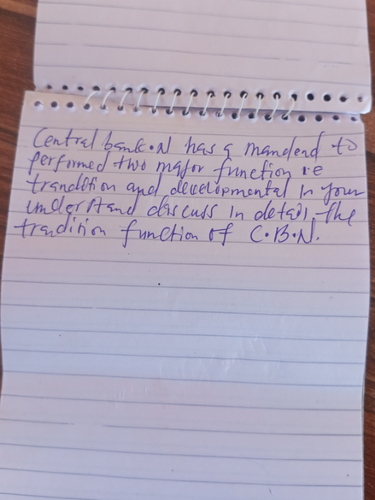 Central bank.N has a mandend to
performed two major function ie
trandition and developmental in your
understand discuss in detail, the
trandition function of C.B.N.